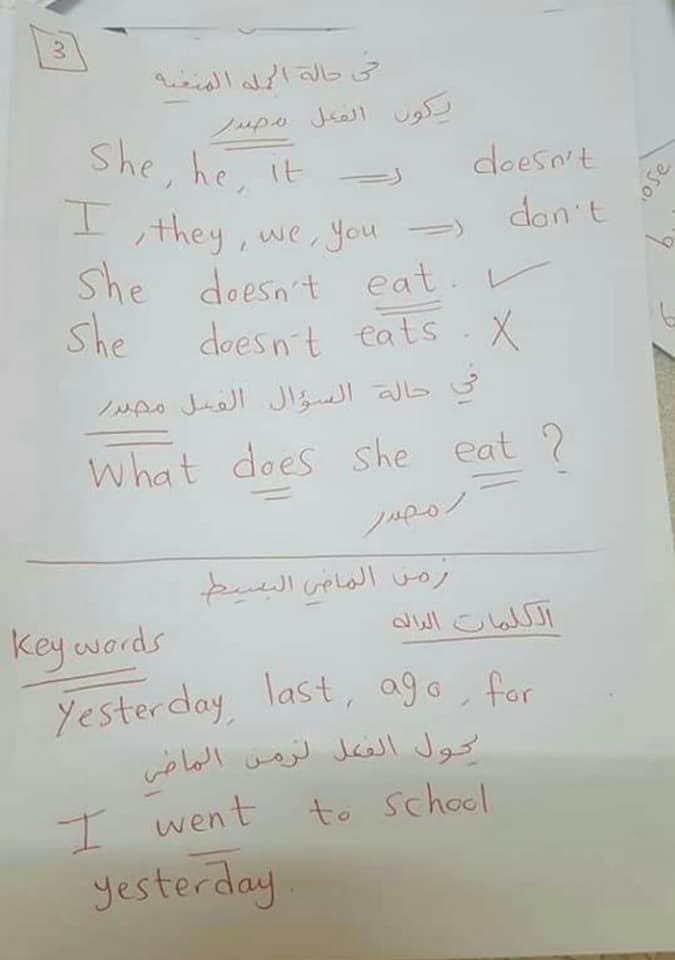 3
في حالة الجمله المنفيه
يكون الفعل مصدر
She, he, it ⇒ doesn't
I, they, we, you ⇒ don't
She doesn't eat. ✓
She doesn't eats. X
في حالة السؤال الفعل مصدر
What does she eat?
مصدر
زمن الماضي البسيط
الكلمات الداله
Key words
Yesterday, last, ago, for
يحول الفعل لزمن الماضي
I went to school
yesterday.
ose